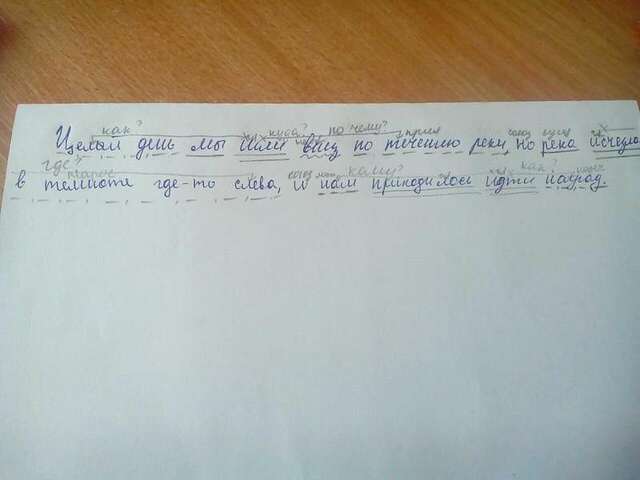 как? куда? по чему?
Целый день мы шли вниз по течению реки, но река исчезла
где? кому? как?
в темноте где-то слева, и нам приходилось идти наугад.